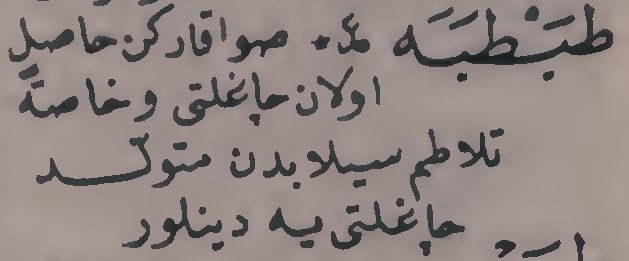 طَبْطَبَه ع٠ صو اقاركن حاصل
اولان چاغلتی وخاصةً
تلاطم سیلابدن متولّد
چاغلتی یه دینلور